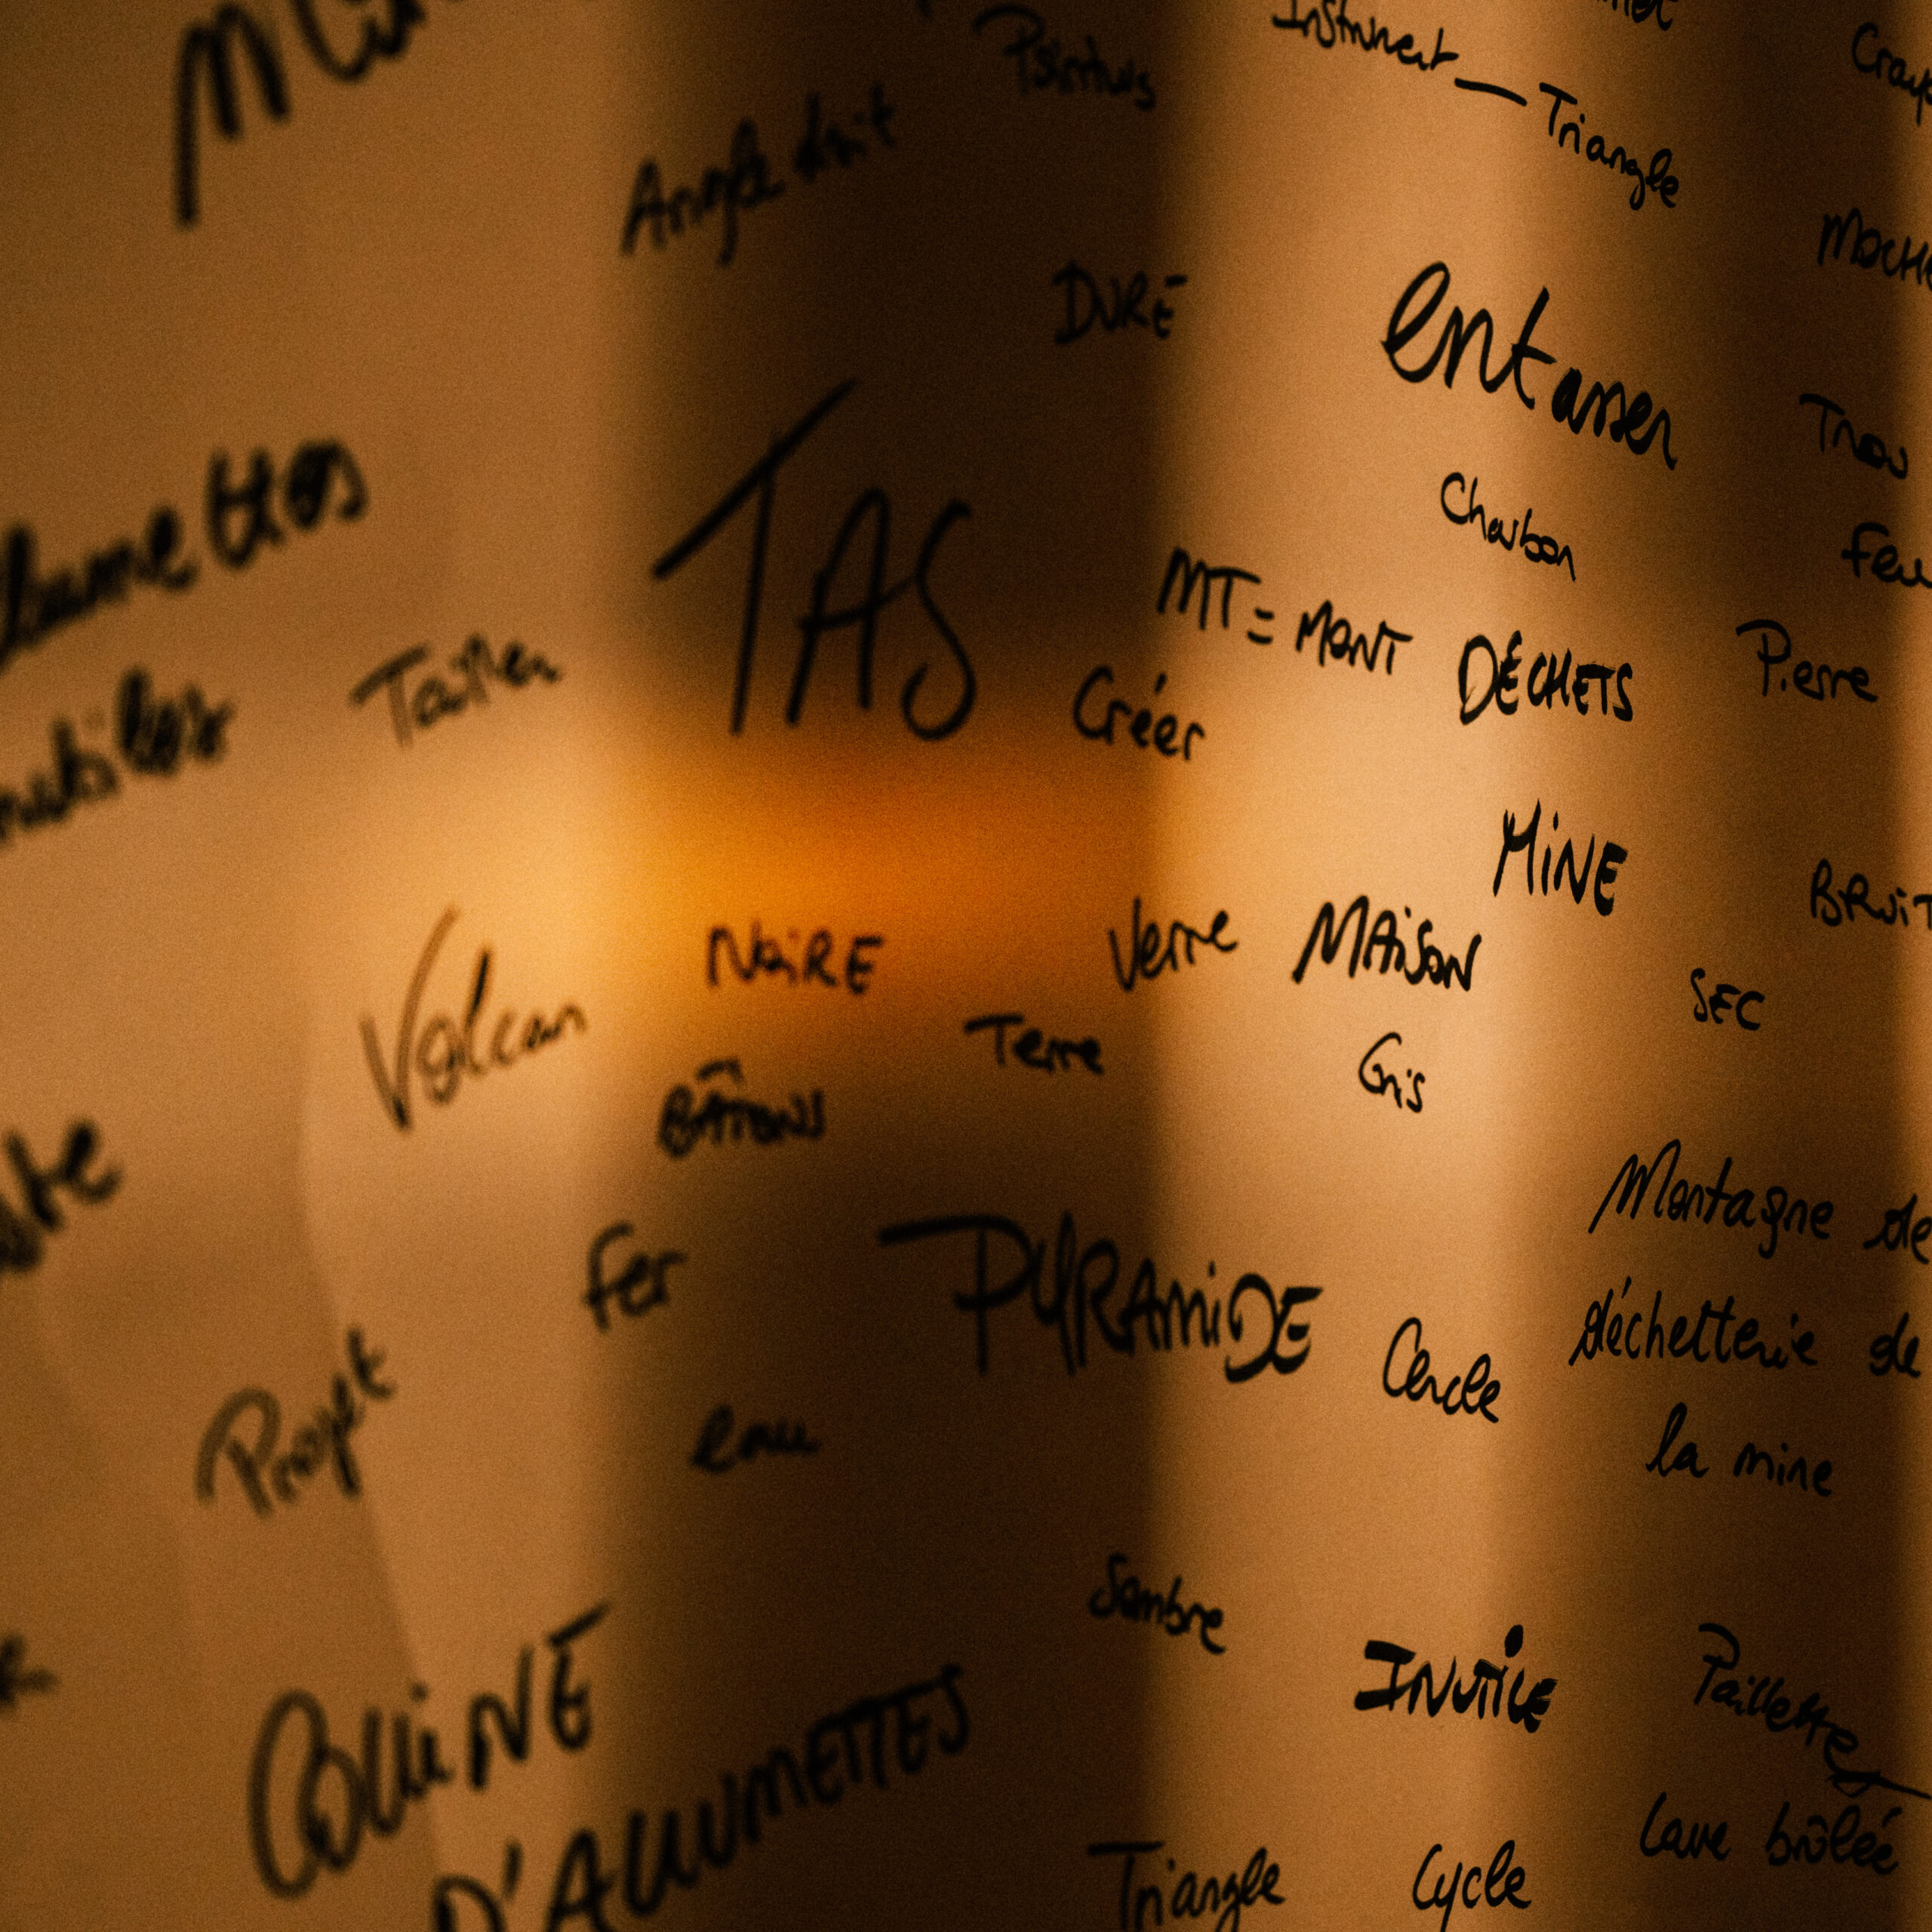 Instrument — Triangle
Angle droit
DURE
entasser
TAS
Charbon
Feu
MT = MONT
DÉCHETS
Pierre
Tailler
Créer
MINE
BRUIT
NOIRE
Verre
MAISON
SEC
Volcan
Terre
Gris
BÂTONS
Montagne de
déchetterie de
la mine
Fer
PYRAMIDE
Cercle
Projet
eau
Sombre
INUTILE
Paillette
COLLINE
D'ALLUMETTES
Lave brûlée
Triangle
Cycle